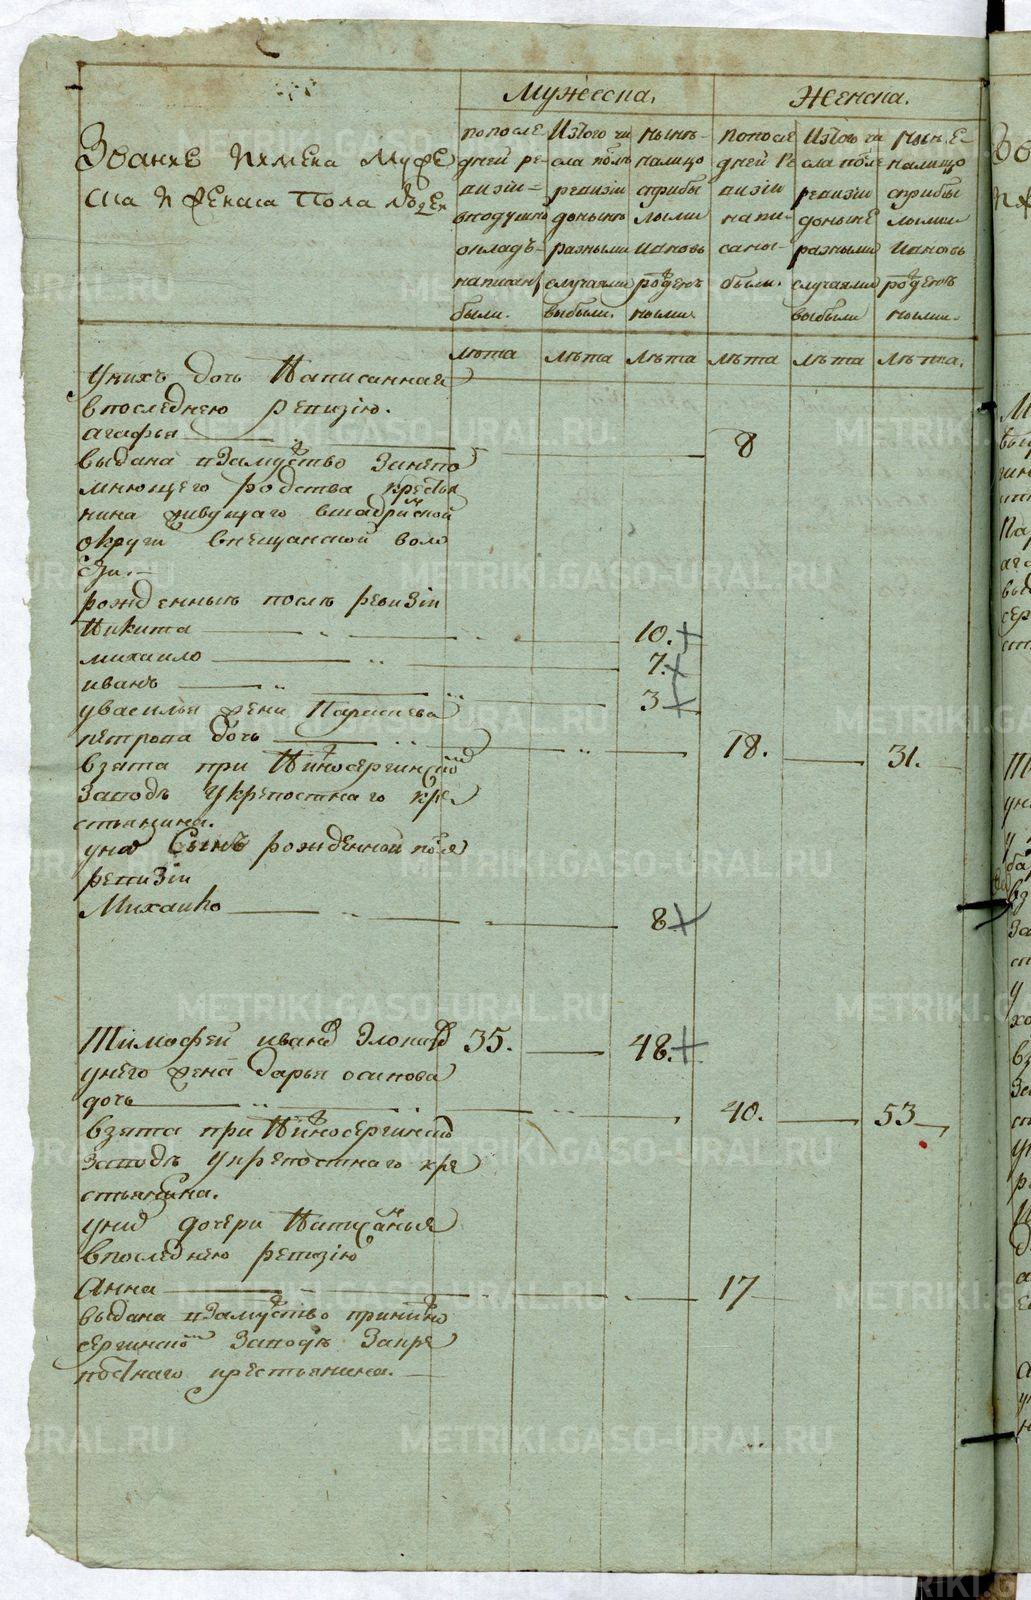 Мужеска.
Женска.
Звание имена муже
ска и женска Пола людех
по после
дней ре
визии
в подушно
оклад
написан
были.
Из того чи
сла после
ревизии
доныне
разными
случаями
выбыли.
ныне
на лицо
с прибы
лыми
и вновь
рожден
ными
По после
дней ре
визии
напи
саны
были.
Из того чи
сла после
ревизии
доныне
разными
случаями
выбыли
Ныне
на лицо
с прибы
лыми
и вновь
рожден
ными
лета лѣта лѣта лѣта лѣта лѣта.
у нихъ дочь Написанная
в последнею ревизію.
агафья 8
выдана в Замуство За непо
мнющего родства крестья
нина живущаго в шадринской
округи в воло
сти.
рожденныи послѣ ревизіи
Никита 10.
михаило 7.
иванъ 3
у василья жена Парасковья
петрова дочь 18. 31.
взята при Нижносергинском
Заводѣ у крепостнаго кре
стьянина.
у ней Сынъ рожденной после
ревизіи
Михаило 8
Тимофей иванов 35. 48.
у него жена дарья осипова
дочь 40. 53
взята при Нижносергинском
Заводѣ у крепостнаго кре
стьянина.
у них дочери Написанные
в последнею ревизію
Анна 17
выдана в Замуство при нижно
сергинском Заводѣ За кре
постнаго крестьянина.
METRIKI.GASO-URAL.RU